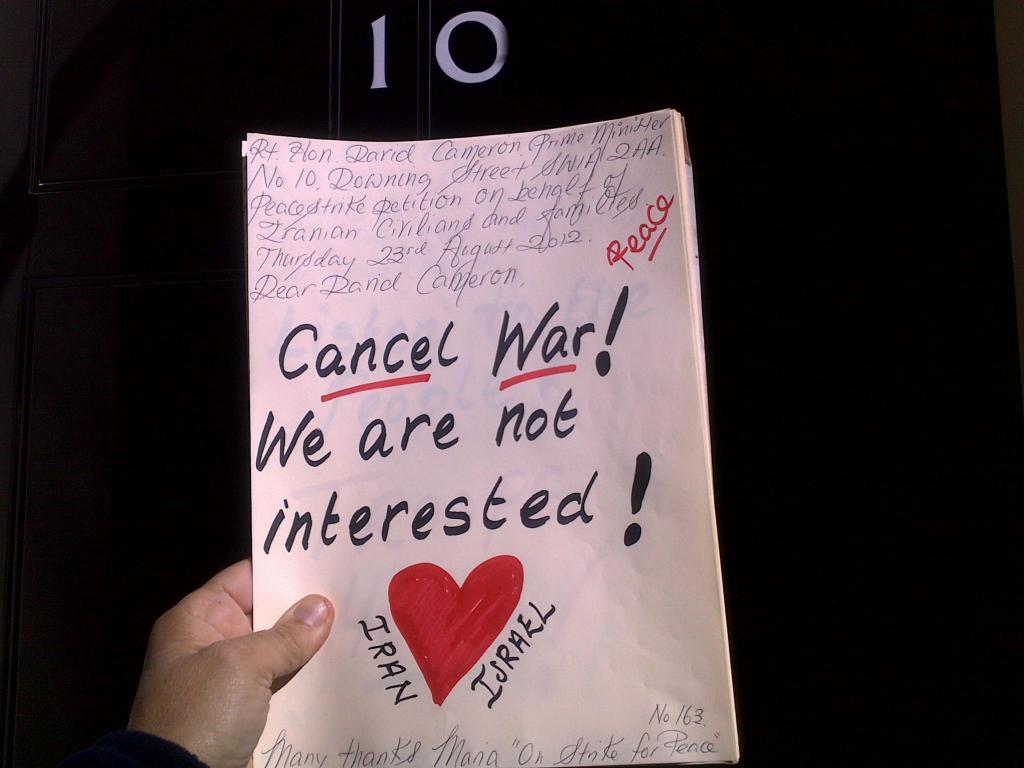 10
Rt. Hon. David Cameron Prime Minister
No 10. Downing Street SW1A 2AA.
Peacestrike petition on behalf of
Iranian Civilians and families.
Thursday 23rd August 2012.
Peace
Dear David Cameron,
Cancel War!
We are not
interested!
IRAN
ISRAEL
No 163.
Many thanks Maria "On Strike for Peace"